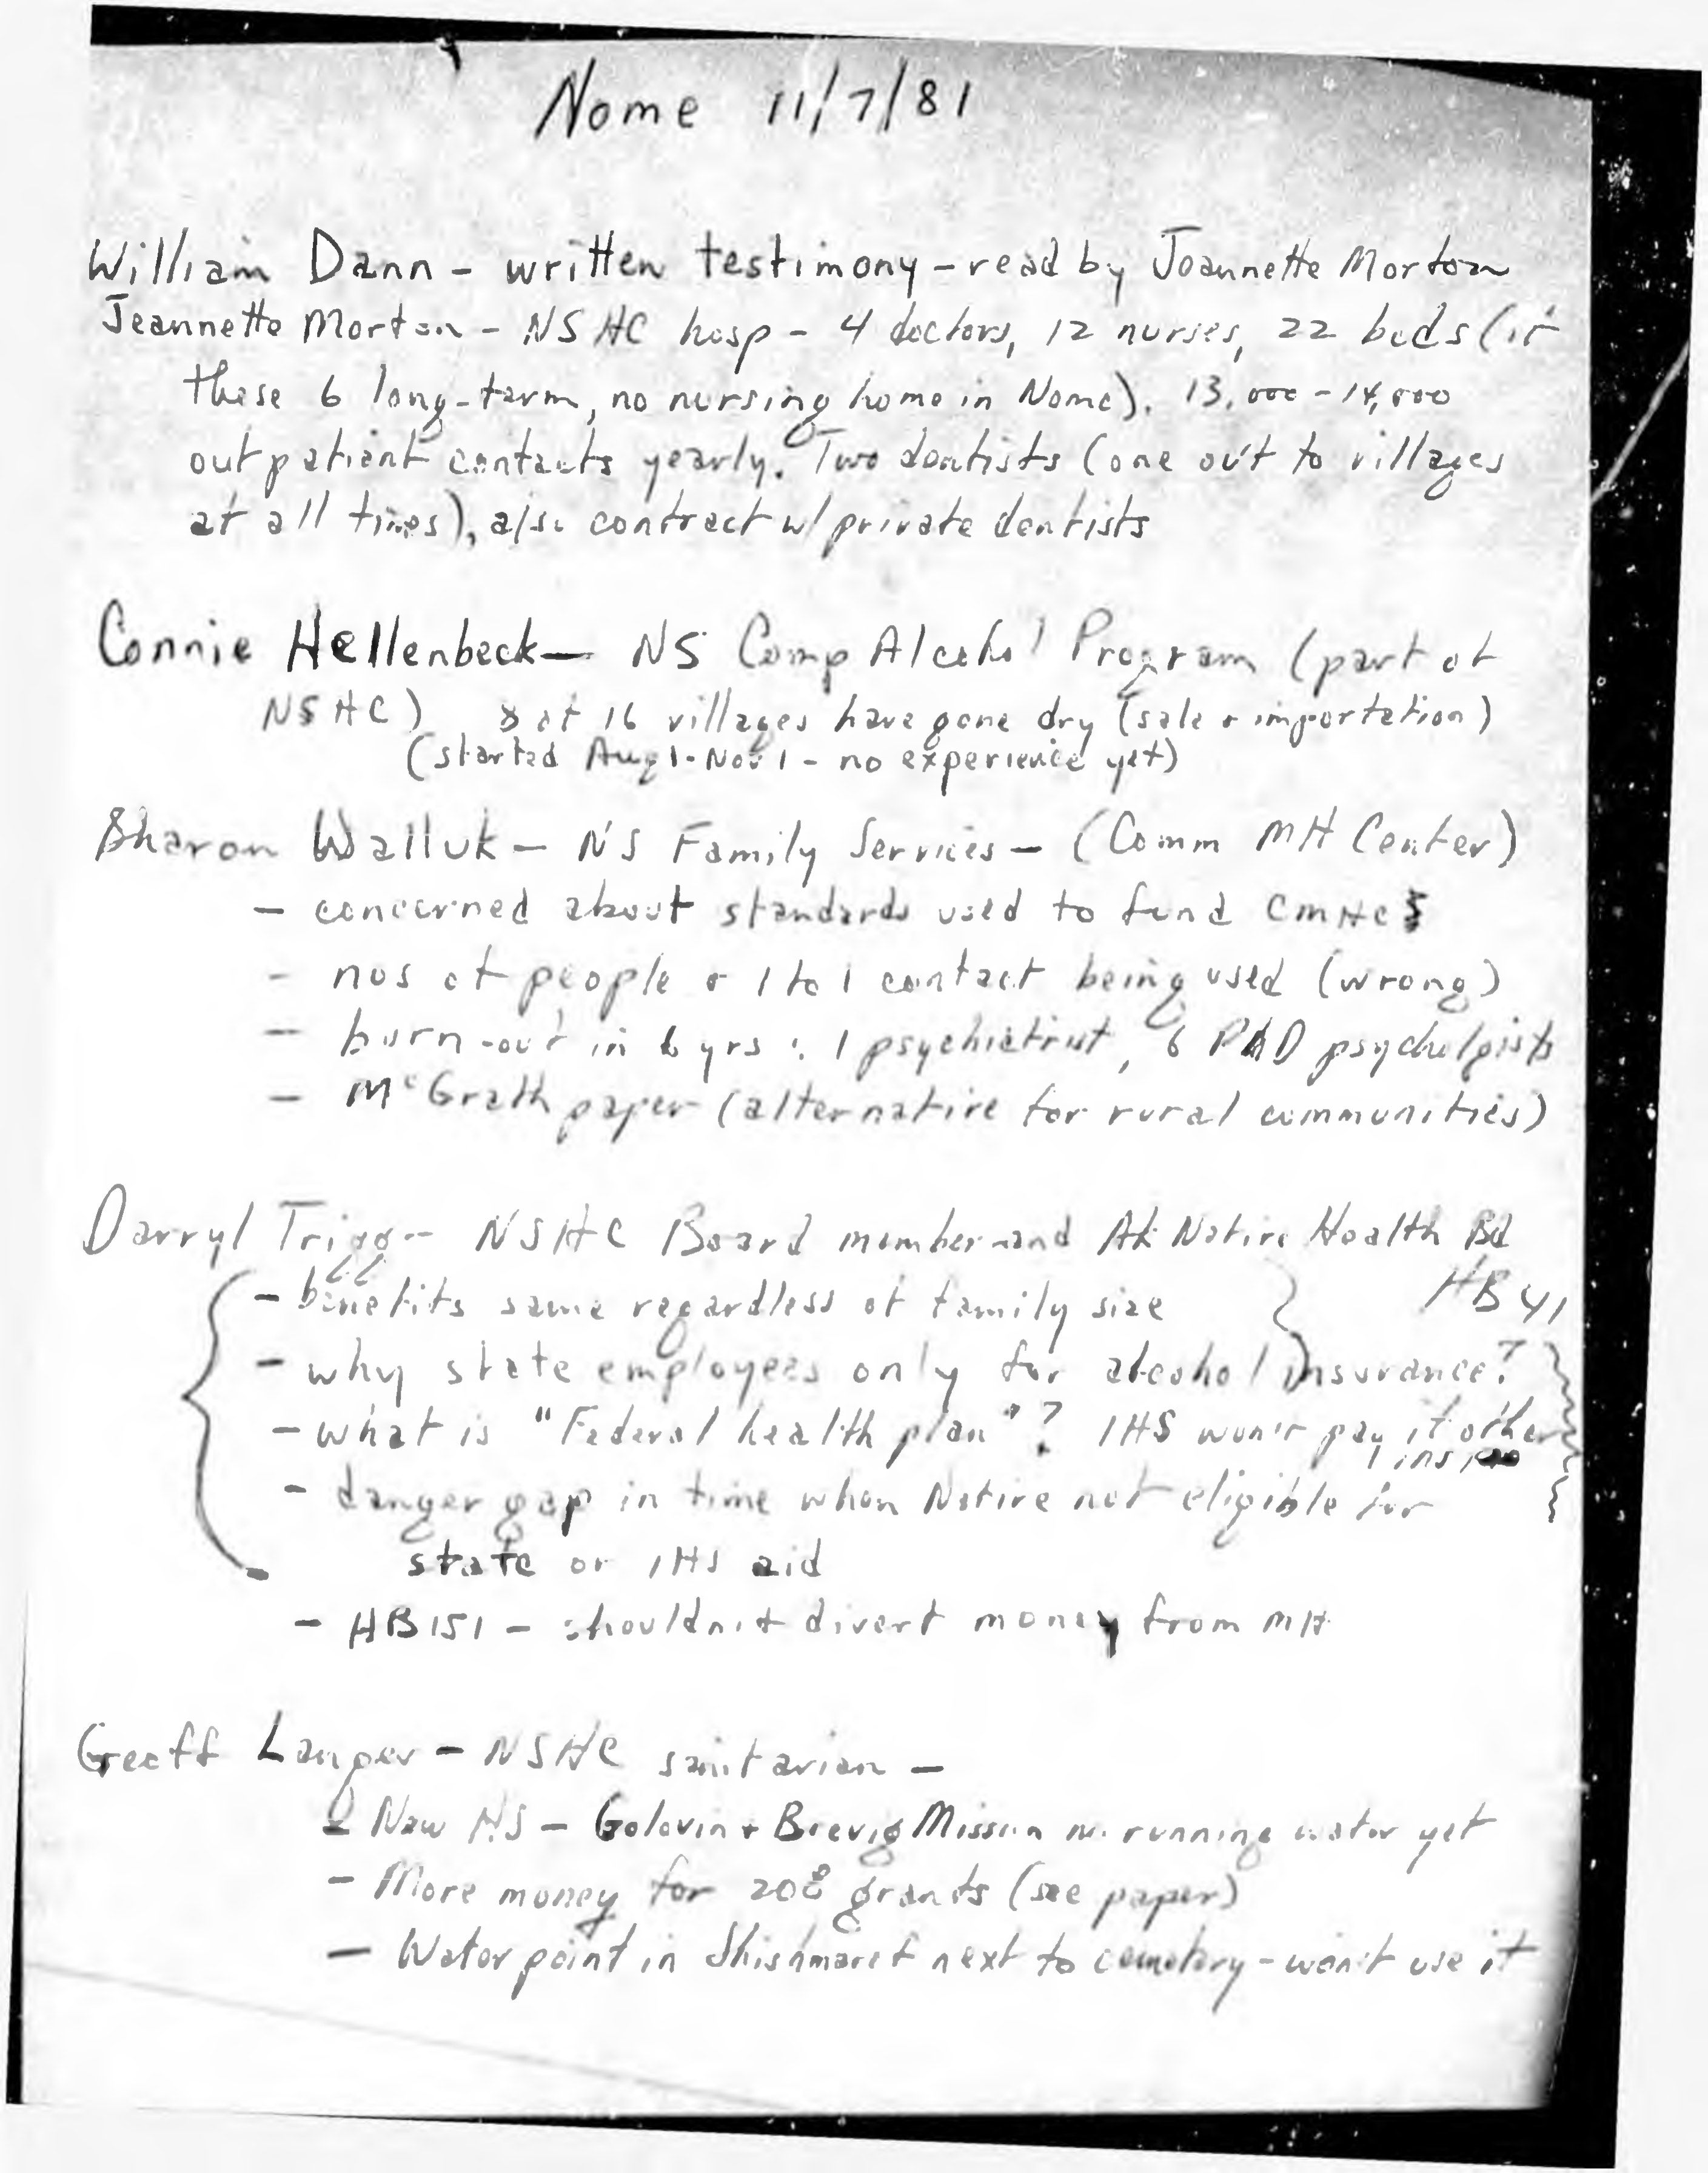 Nome 11/7/81
William Dann - written testimony - read by Joannette Morton
Jeannette Morton - NSHC hosp - 4 doctors, 12 nurses, 22 beds (of
these 6 long-term, no nursing home in Nome). 13,000 - 14,000
outpatient contacts yearly. Two dentists (one out to villages
at all times), also contract w/ private dentists
Connie Hellenbeck - NS Comp Alcohol Program (part of
NSHC) 8 of 16 villages have gone dry (sale + importation)
(started Aug 1 - Nov 1 - no experience yet)
Sharon Walluk - NS Family Services - (Comm MH Center)
- concerned about standards used to fund CMHCs
- nos of people + 1 to 1 contact being used (wrong)
- burn-out in 6 yrs : 1 psychiatrist, 6 PhD psychologists
- McGrath paper (alternative for rural communities)
Darryl Trigg - NSHC Board member and AK Native Health Bd
- benefits same regardless of family size
HB 41
- why state employees only for alcohol insurance?
- what is "Federal health plan"? IHS won't pay if other
ins
- danger gap in time when Native not eligible for
state or IHS aid
- HB151 - shouldn't divert money from MH
Geoff Langer - NSHC sanitarian -
- New HS - Golovin + Brevig Mission no running water yet
- More money for 208 grants (see paper)
- Water point in Shishmaref next to cemetery - won't use it